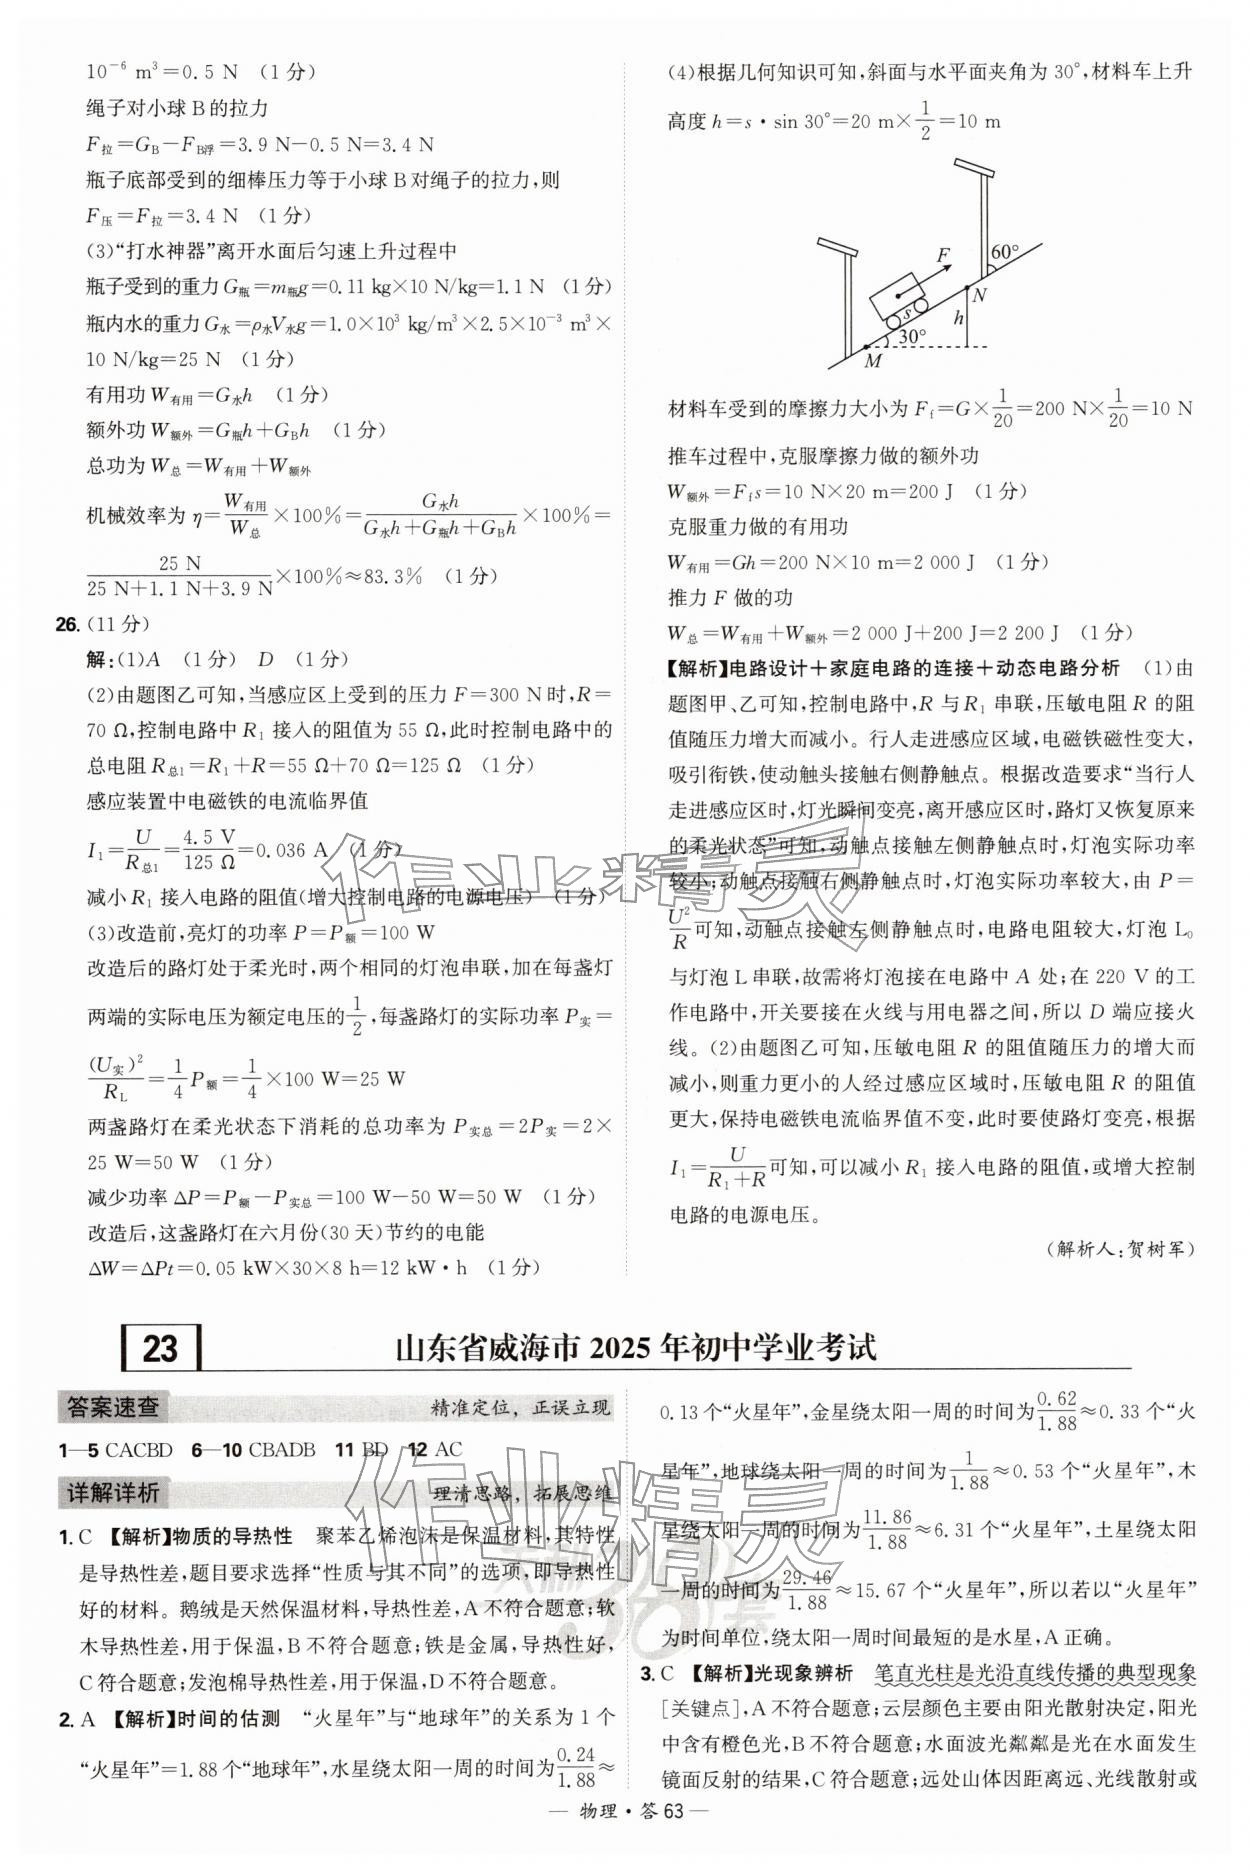 10⁻⁶ m³=0.5 N （1 分）
绳子对小球 B 的拉力
F拉=G_B－F_B浮=3.9 N－0.5 N=3.4 N
瓶子底部受到的细棒压力等于小球 B 对绳子的拉力,则
F压=F拉=3.4 N （1 分）
(3)“打水神器”离开水面后匀速上升过程中
瓶子受到的重力 G瓶=m瓶g=0.11 kg×10 N/kg=1.1 N （1 分）
瓶内水的重力 G水=ρ水V水g=1.0×10³ kg/m³×2.5×10⁻³ m³×
10 N/kg=25 N （1 分）
有用功 W有用=G水h （1 分）
额外功 W额外=G瓶h+G_Bh （1 分）
总功为 W总=W有用+W额外
机械效率为 η=W有用/W总×100%=G水h/(G水h+G瓶h+G_Bh)×100%=
25 N/(25 N+1.1 N+3.9 N)×100%≈83.3% （1 分）
26.(11 分)
解:(1)A （1 分） D （1 分）
(2)由题图乙可知,当感应区上受到的压力 F=300 N 时,R=
70 Ω,控制电路中 R₁ 接入的阻值为 55 Ω,此时控制电路中的
总电阻 R总1=R₁+R=55 Ω+70 Ω=125 Ω （1 分）
感应装置中电磁铁的电流临界值
I₁=U/R总1=4.5 V/125 Ω=0.036 A （1 分）
减小 R₁ 接入电路的阻值(增大控制电路的电源电压) （1 分）
(3)改造前,亮灯的功率 P=P额=100 W
改造后的路灯处于柔光时,两个相同的灯泡串联,加在每盏灯
两端的实际电压为额定电压的1/2,每盏路灯的实际功率 P实=
(U实)²/R_L=1/4P额=1/4×100 W=25 W
两盏路灯在柔光状态下消耗的总功率为 P实总=2P实=2×
25 W=50 W （1 分）
减少功率 ΔP=P额－P实总=100 W－50 W=50 W （1 分）
改造后,这盏路灯在六月份(30 天)节约的电能
ΔW=ΔPt=0.05 kW×30×8 h=12 kW·h （1 分）
(4)根据几何知识可知,斜面与水平面夹角为 30°,材料车上升
高度 h=s·sin 30°=20 m×1/2=10 m
F
60°
N
s
h
30°
M
材料车受到的摩擦力大小为 F_f=G×1/20=200 N×1/20=10 N
推车过程中,克服摩擦力做的额外功
W额外=F_fs=10 N×20 m=200 J （1 分）
克服重力做的有用功
W有用=Gh=200 N×10 m=2 000 J （1 分）
推力 F 做的功
W总=W有用+W额外=2 000 J+200 J=2 200 J （1 分）
【解析】电路设计＋家庭电路的连接＋动态电路分析 (1)由
题图甲、乙可知,控制电路中,R 与 R₁ 串联,压敏电阻 R 的阻
值随压力增大而减小。行人走进感应区域,电磁铁磁性变大,
吸引衔铁,使动触头接触右侧静触点。根据改造要求“当行人
走进感应区时,灯光瞬间变亮,离开感应区时,路灯又恢复原来
的柔光状态”可知,动触点接触左侧静触点时,灯泡实际功率
较小;动触点接触右侧静触点时,灯泡实际功率较大,由 P=
U²/R可知,动触点接触左侧静触点时,电路电阻较大,灯泡 L₀
与灯泡 L 串联,故需将灯泡接在电路中 A 处;在 220 V 的工
作电路中,开关要接在火线与用电器之间,所以 D 端应接火
线。(2)由题图乙可知,压敏电阻 R 的阻值随压力的增大而
减小,则重力更小的人经过感应区域时,压敏电阻 R 的阻值
更大,保持电磁铁电流临界值不变,此时要使路灯变亮,根据
I₁=U/(R₁+R)可知,可以减小 R₁ 接入电路的阻值,或增大控制
电路的电源电压。
(解析人:贺树军)
23 山东省威海市 2025 年初中学业考试
答案速查 精准定位，正误立现
1—5 CACBD 6—10 CBADB 11 BD 12 AC
详解详析 理清思路，拓展思维
1. C 【解析】物质的导热性 聚苯乙烯泡沫是保温材料,其特性
是导热性差,题目要求选择“性质与其不同”的选项,即导热性
好的材料。鹅绒是天然保温材料,导热性差,A 不符合题意;软
木导热性差,用于保温,B 不符合题意;铁是金属,导热性好,
C 符合题意;发泡棉导热性差,用于保温,D 不符合题意。
2. A 【解析】时间的估测 “火星年”与“地球年”的关系为 1 个
“火星年”=1.88 个“地球年”,水星绕太阳一周的时间为0.24/1.88≈
0.13 个“火星年”,金星绕太阳一周的时间为0.62/1.88≈0.33 个“火
星年”,地球绕太阳一周的时间为1/1.88≈0.53 个“火星年”,木
星绕太阳一周的时间为11.86/1.88≈6.31 个“火星年”,土星绕太阳
一周的时间为29.46/1.88≈15.67 个“火星年”,所以若以“火星年”
为时间单位,绕太阳一周时间最短的是水星,A 正确。
3. C 【解析】光现象辨析 笔直光柱是光沿直线传播的典型现象
[关键点],A 不符合题意;云层颜色主要由阳光散射决定,阳光
中含有橙色光,B 不符合题意;水面波光粼粼是光在水面发生
镜面反射的结果,C 符合题意;远处山体因距离远、光线散射或
— 物理·答 63 —
作业精灵
作业精灵
天利38套